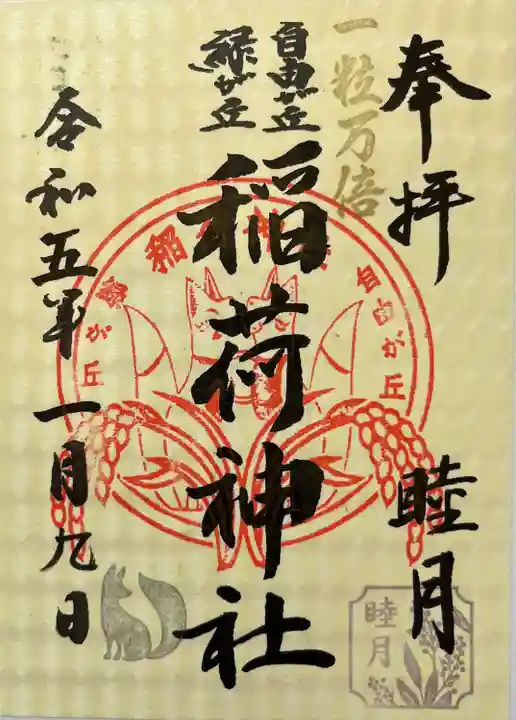 奉拝
睦月
一粒万倍
自由が丘
緑が丘
稲荷神社
令和五年一月九日
自由が丘
緑が丘
睦月